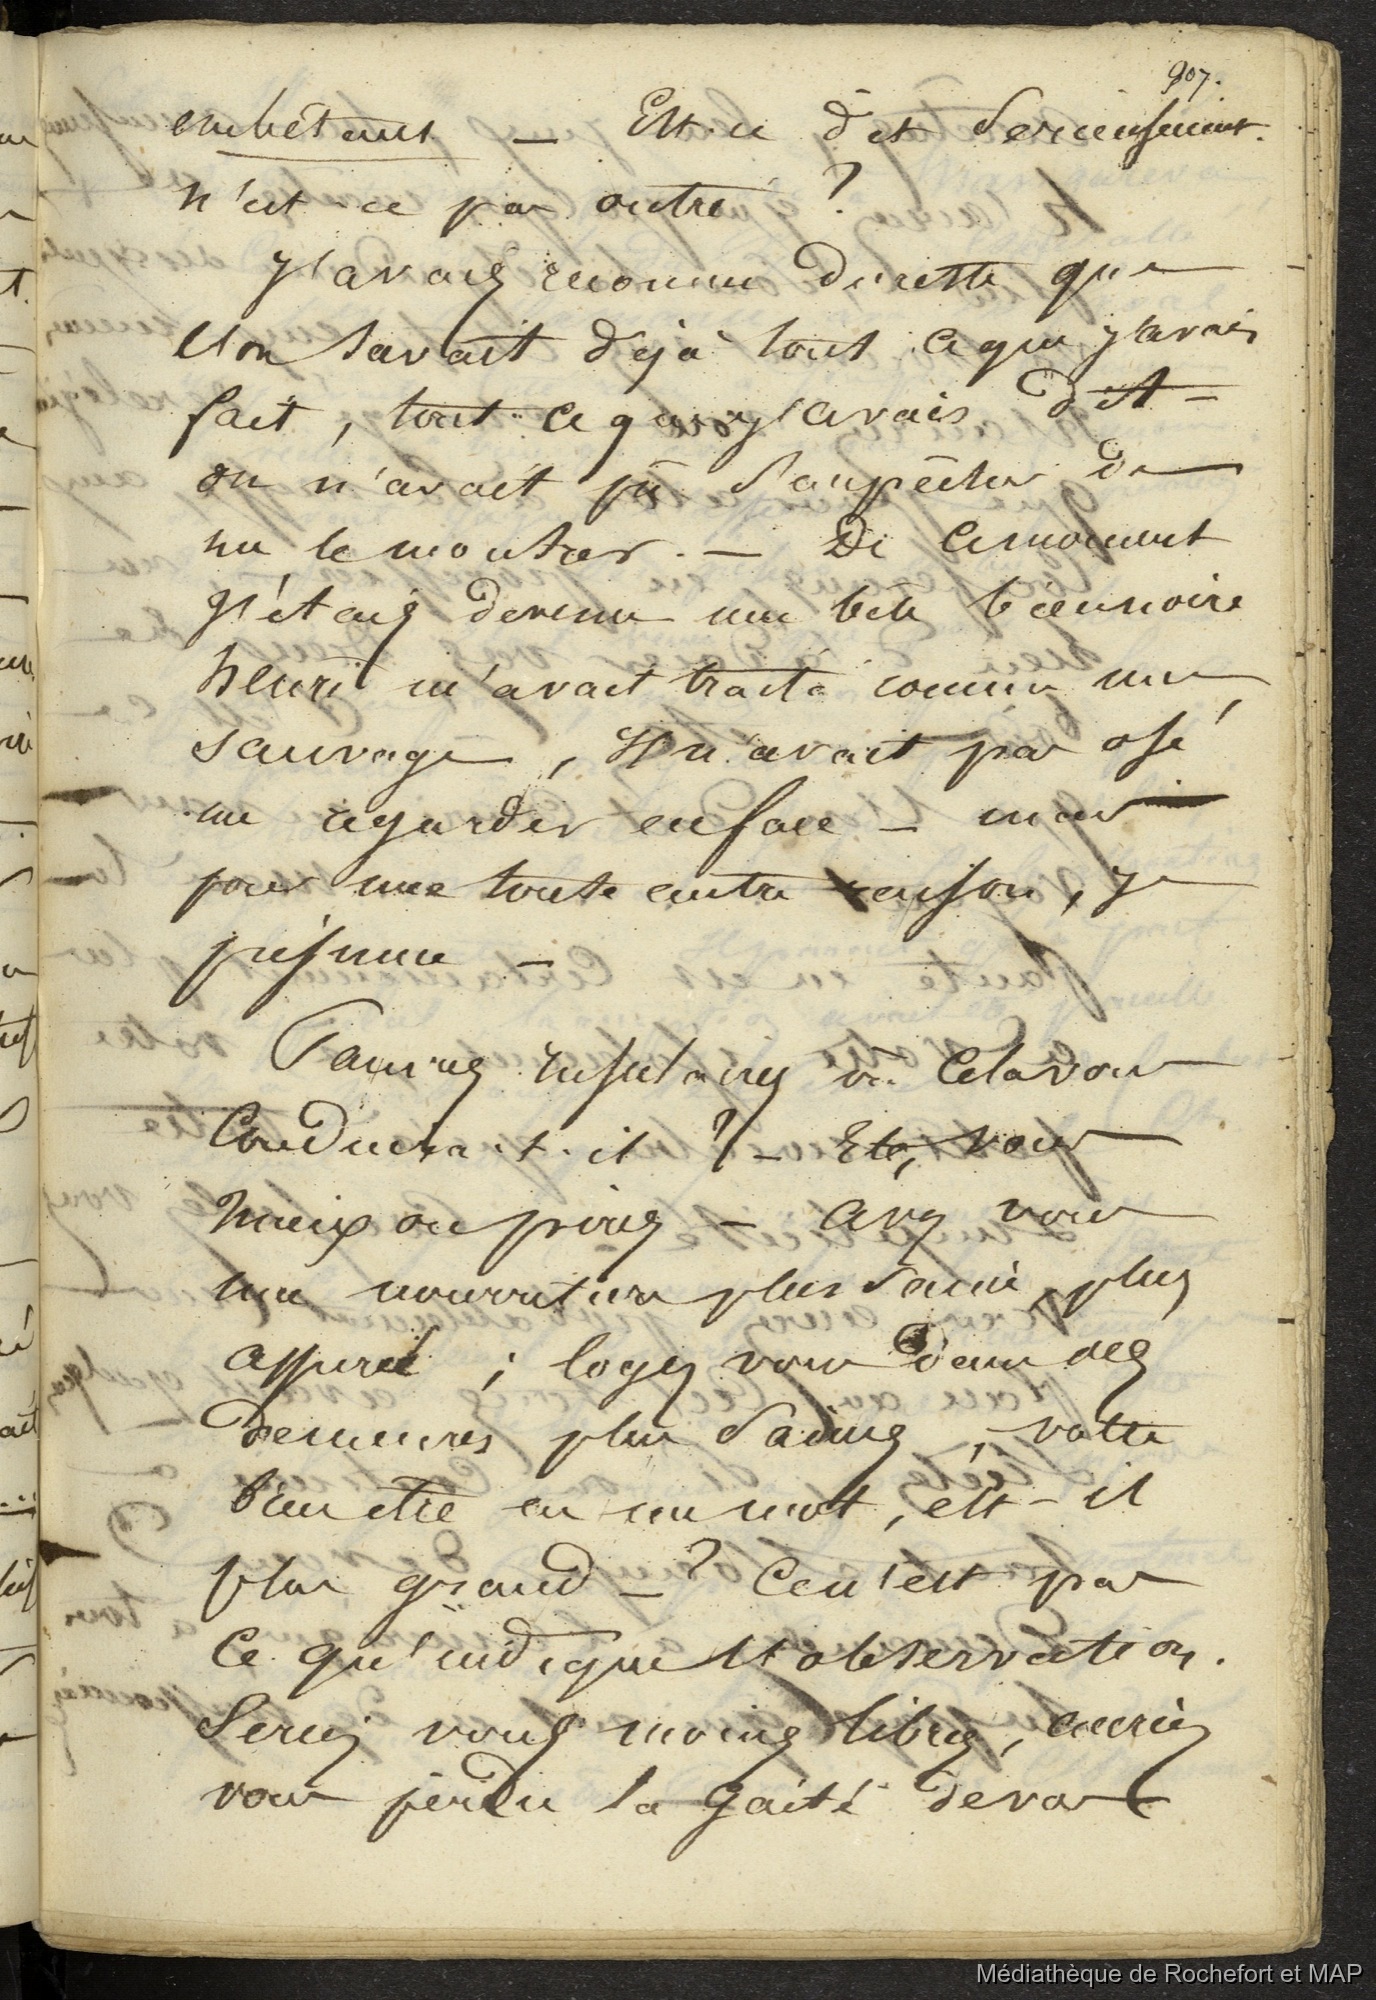 907.
embêtans — Est-ce dit serieusement.
n'est-ce pas outré ?
J'avais reconnu du reste que
l'on savait déjà tout ce que j'avais
fait, tout ce que j'avais dit —
on n'avait pû s'empêcher de
me le montrer. — De ce moment
j'étais devenu une bête bien noire
henri m'avait traité comme une
sauvage, Il n'avait pas osé
me regarder en face — mais
pour une toute autre raison, je
présume —
Pauvres insulaires où cela vous
conduira-t-il ? — Etes vous
mieux ou pires — avez vous
une nourriture plus saine, plus
assurée ; logez vous dans des
demeures plus saines, votre
bien etre en un mot, est-il
plus grand — ? Ce n'est pas
ce qu'indique l'observation.
Seriez vous moins libres, auriez
vous perdu la gaité de vos
Médiathèque de Rochefort et MAP